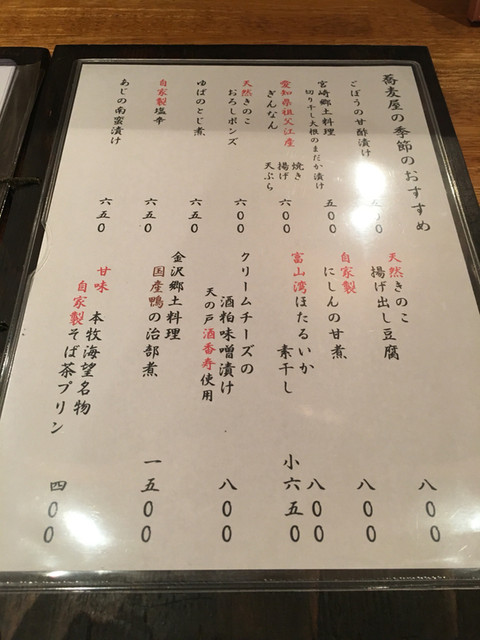 蕎麦屋の季節のおすすめ
ごぼうの甘酢漬け
五〇〇
宮崎郷土料理
切り干し大根のまだか漬け
五〇〇
愛知県祖父江産
ぎんなん
焼き
揚げ
天ぷら
六〇〇
天然きのこ
おろしポンズ
六〇〇
ゆばのとじ煮
六五〇
自家製塩辛
六五〇
あじの南蛮漬け
六五〇
天然きのこ
揚げ出し豆腐
八〇〇
自家製
にしんの甘煮
八〇〇
富山湾ほたるいか
素干し
八〇〇
小六五〇
クリームチーズの
酒粕味噌漬け
天の戸酒番寿使用
八〇〇
金沢郷土料理
国産鴨の治部煮
一五〇〇
甘味 本牧海望名物
自家製そば茶プリン
四〇〇